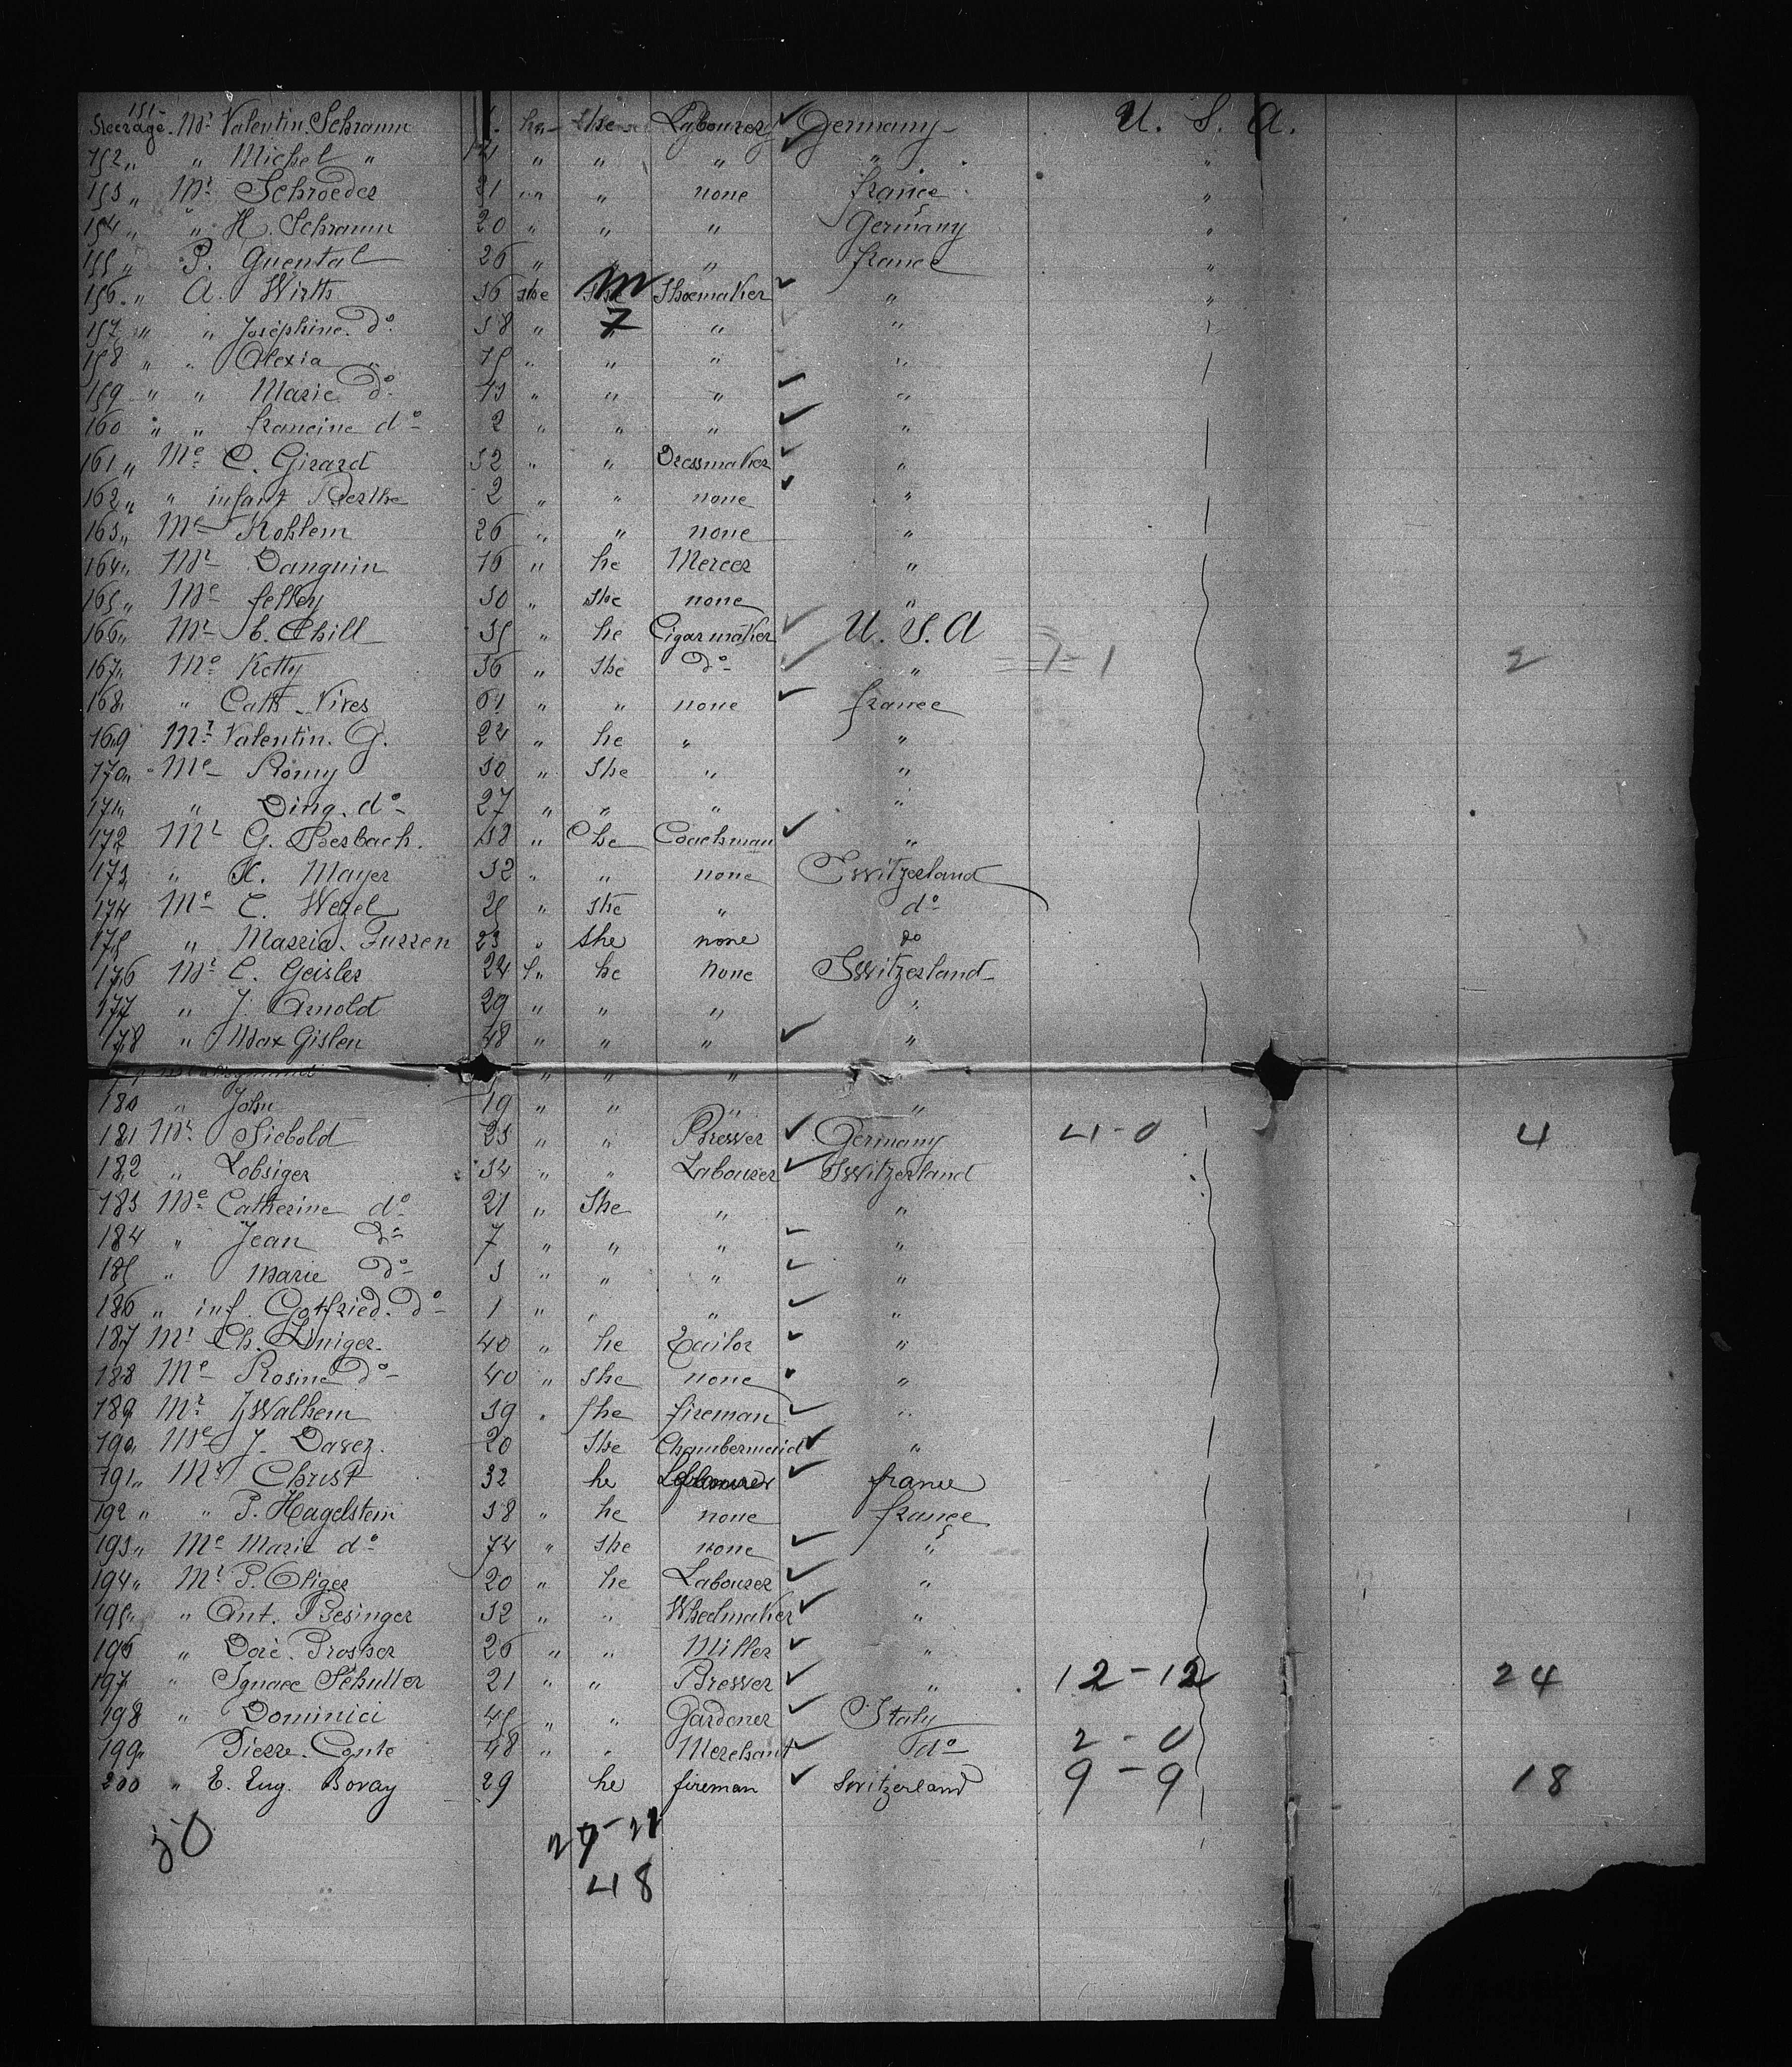 151 Steerage Mr Valentin Schramm he she Labourer Germany U. S. A.
152 " " Michel " " " " " "
153 " Mr Schroeder 31 " " none france "
154 " " H. Schramm 20 " " " Germany "
155 " P. Guental 26 " " " france "
156 " A. Wirth 36 she M Shoemaker " "
157 " " Joséphine do 38 " 7 " "
158 " " Alexia " 15 " " " "
159 " " Marie do 13 " " " "
160 " " francine do 2 " " " "
161 " Me C. Girard 32 " " Dressmaker "
162 " " infant Berthe 2 " " none "
163 " Me Kohlem 26 " " none "
164 " Mr Danguin 16 " he Mercer "
165 " Me felley 30 " she none "
166 " Mr C. Chill 35 " he Cigar maker U. S. A
167 " Me Ketty 36 " she do " 1-1 2
168 " " Cath Vives 61 " " none france
169 Mr Valentin. G. 24 " he " "
170 " Me Romy 30 " She " "
171 " " Ding. do 27 " " " "
172 Mr G. Besbach. 38 " he Coachman "
173 " " H. Mayer 32 " " none Switzerland
174 Me C. Wezel 25 " she " do
175 " Marria. Furren 23 " she none do
176 Mr C. Geisler 24 " he none Switzerland
177 " J. Arnold 29 " " " "
178 " Max Gislen 48 " " " "
" " "
180 " John 19 " " " "
181 Mr Siebold 23 " " Brewer Germany 4-0 4
182 " Lobsiger 34 " " Labourer Switzerland
183 Me Catherine do 21 " She " "
184 " Jean do 7 " " " "
185 " Marie do 3 " " " "
186 " inf. Gotfried. do 1 " " " "
187 Mr Ch. Liniger. 40 " he Tailor "
188 Me Rosine do 40 " she none "
189 Mr J Walhem 39 " she fireman "
190 Me J. Davez. 20 She Chambermaid "
191 " Mr Christ 32 he Labourer france
192 " " P. Hagelstein 38 " he none france
193 " Me Marie do 74 " she none "
194 " Mr P. Oliger 20 " he Labourer "
195 " " Ant. Besinger 32 " " Wheelmaker "
196 " Doré. Prosper 26 " " Miller "
197 " Ignace Schuller 21 " " Brewer " 12-12 24
198 " Dominici 45 " " Gardener Italy
199 " Pierre. Conte 48 " " Merchant do 2-0
200 " E. Eug. Bovay 29 he fireman Switzerland 9-9 18
50
27-21
48